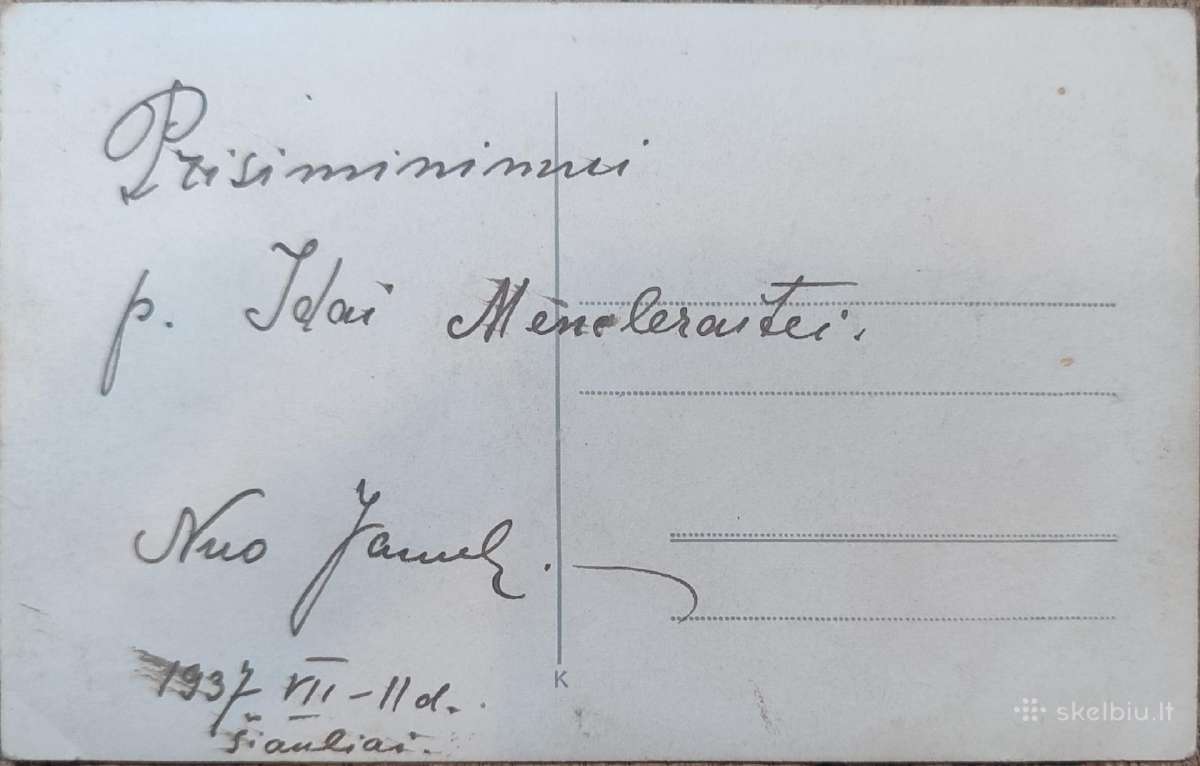 Prisiminimui
p. Idai Menderaitei.
Nuo
1937 VII – 11 d.
Šiauliai.
K
skelbiu.lt